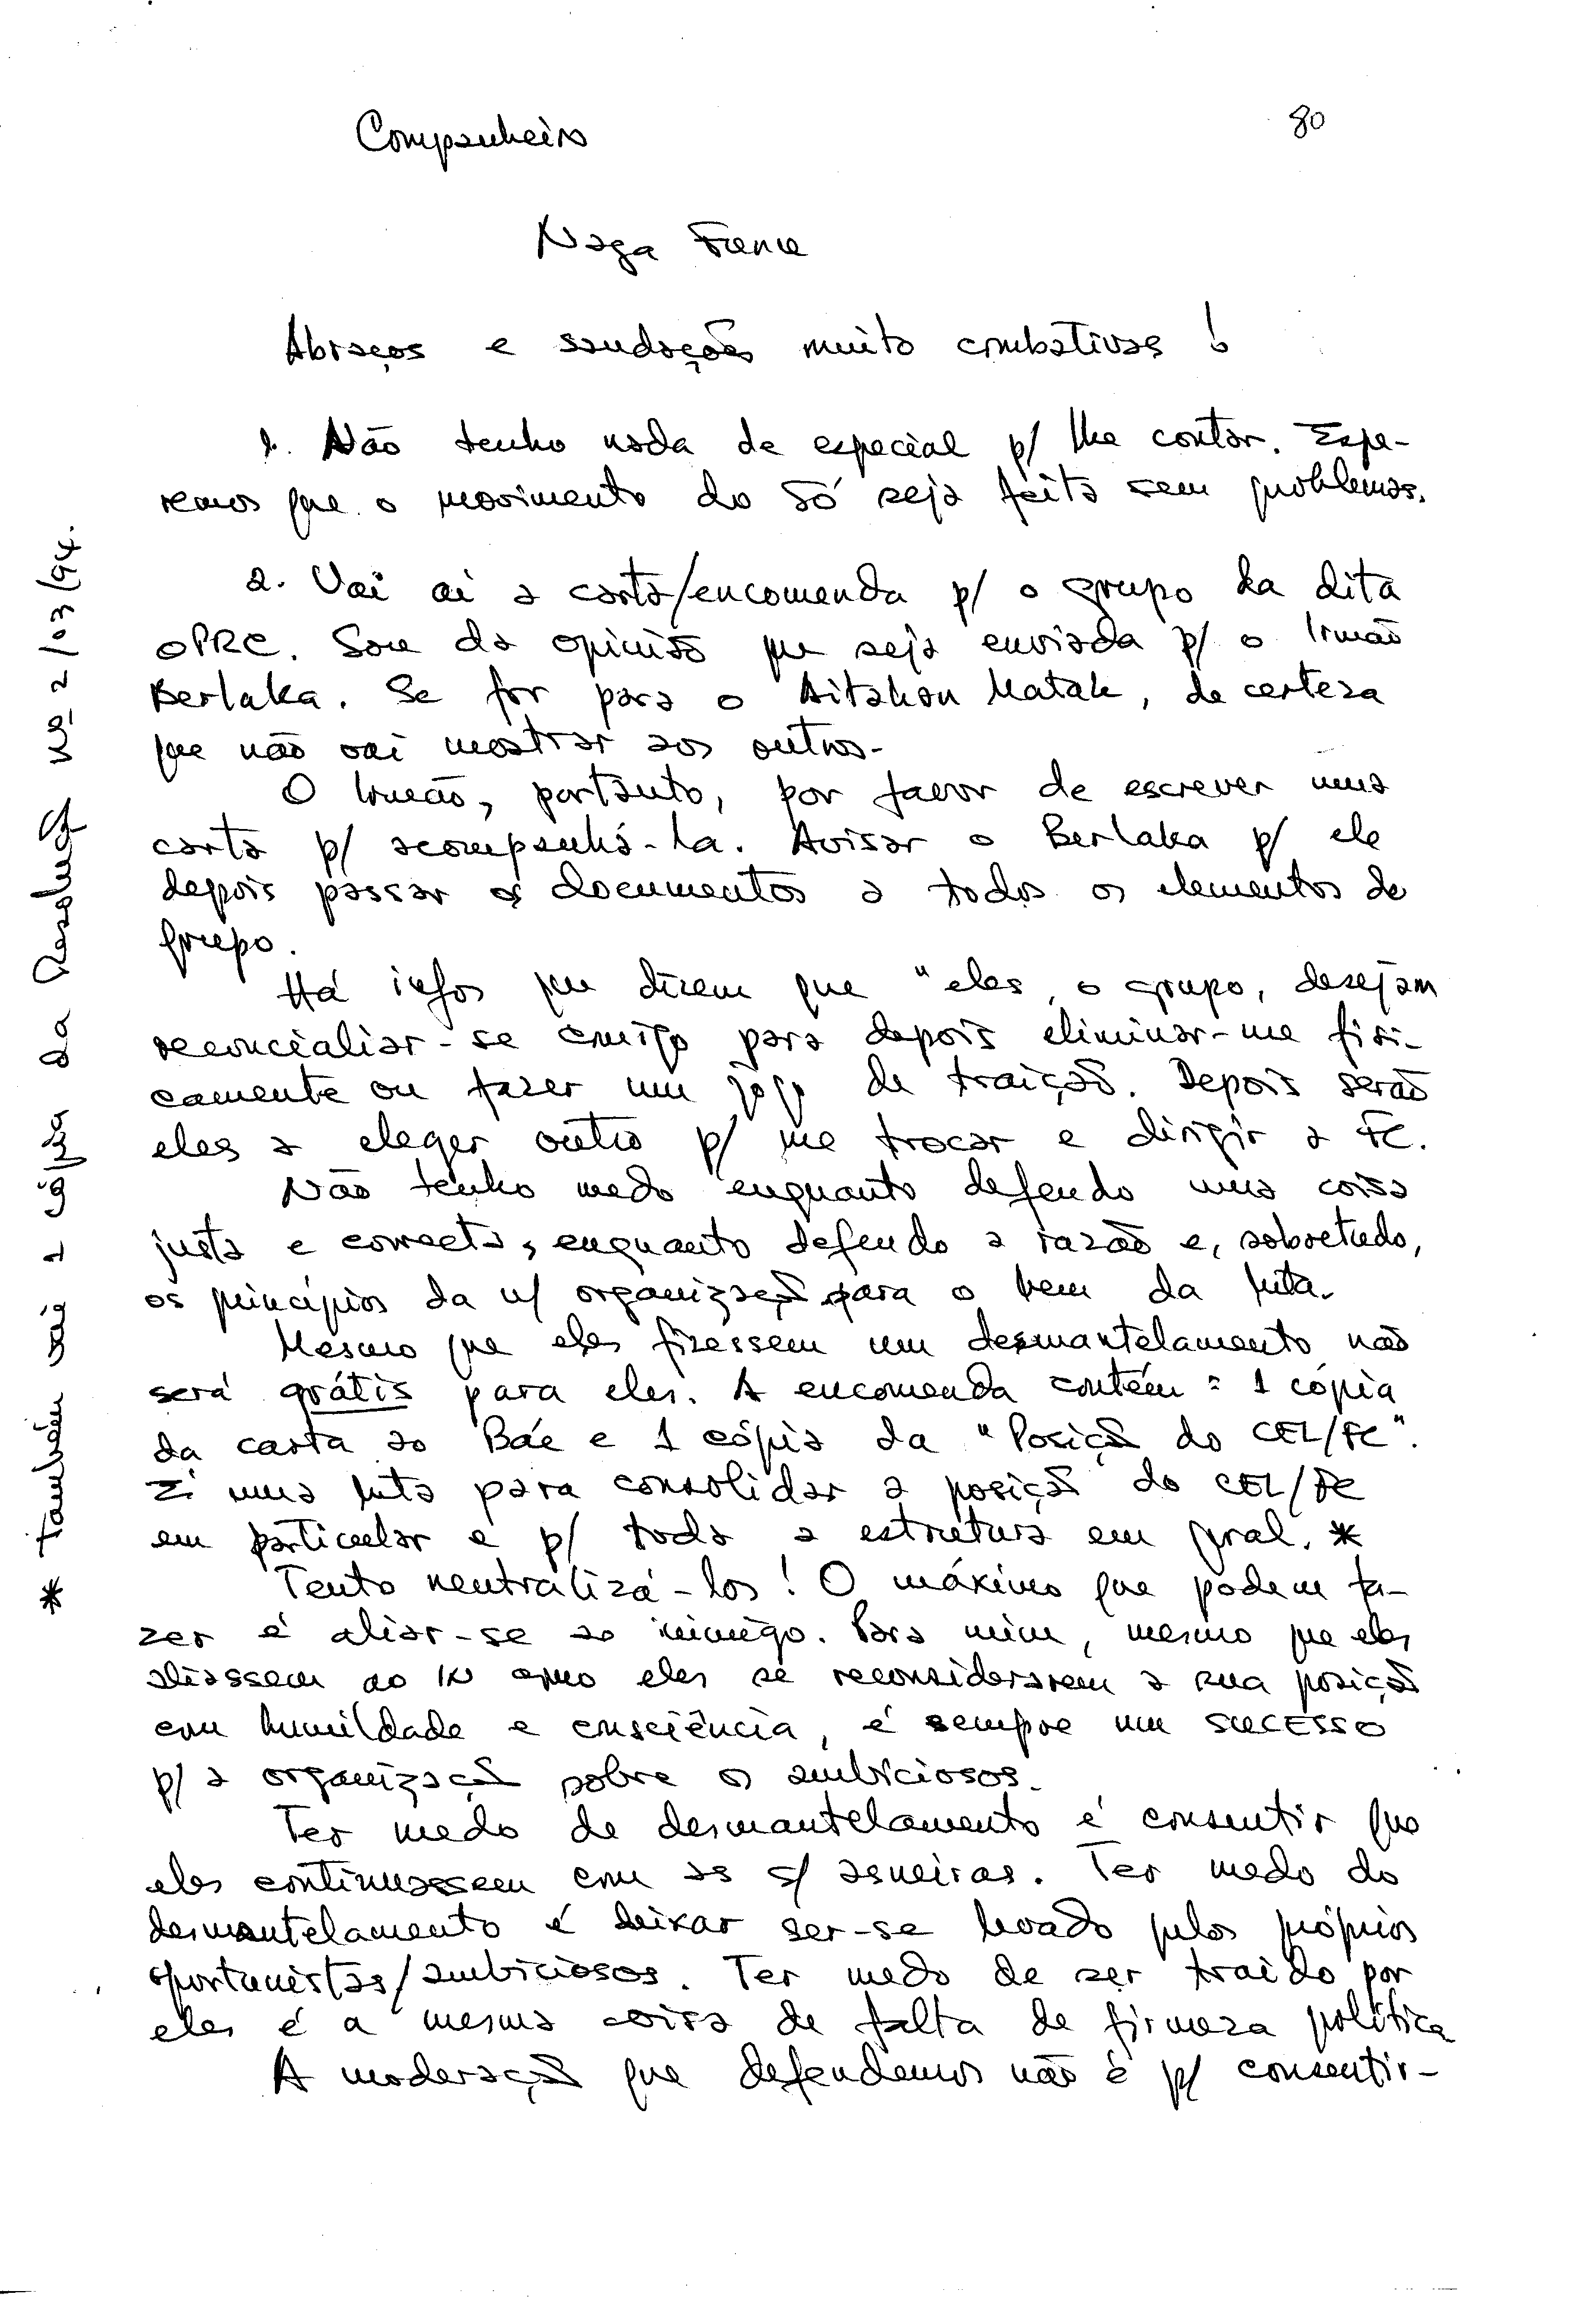 Companheiro
80
Naga
Abraços e saudações muito combativas !
1. Não tenho nada de especial p/ lhe contar. Espe-
remos que o movimento do Só seja feito sem problemas.
2. Vai aí a carta/encomenda p/ o grupo da dita
OPRC. Sou da opinião que seja enviada p/ o Irmão
Berlaka. Se for para o Aitahan Matak, de certeza
que não vai mostrar aos outros.
O Irmão, portanto, por favor de escrever uma
carta p/ acompanhá-la. Avisar o Berlaka p/ ele
depois passar os documentos a todos os elementos do
grupo.
Há infos que dizem que "eles, o grupo, desejam
reconcialiar-se comigo para depois eliminar-me fisi-
camente ou fazer um jogo de traição. Depois serão
eles a eleger outro p/ me trocar e dirigir a FC.
Não tenho medo enquanto defendo uma coisa
justa e correcta, enquanto defendo a razão e, sobretudo,
os princípios da n/ organização para o bem da luta.
Mesmo que eles fizessem um desmantelamento não
será grátis para eles. A encomenda contém: 1 cópia
da carta ao Báe e 1 cópia da "Posição do CEL/FC".
É uma luta para consolidar a posição do CEL/FC
em particular e p/ toda a estrutura em geral. *
Tento neutralizá-los! O máximo que podem fa-
zer é aliar-se ao inimigo. Para mim, mesmo que eles
aliassem ao IN eles se reconsiderarem a sua posição
com humildade e consciência, é sempre um SUCESSO
p/ a organização sobre os ambiciosos.
Ter medo de desmantelamento é consentir que
eles continuassem com as s/ asneiras. Ter medo do
desmantelamento é deixar ser-se levado pelos próprios
oportunistas/ambiciosos. Ter medo de ser traído por
eles é a mesma coisa de falta de firmeza política
A moderação que defendemos não é p/ consentir-
* Também vai 1 cópia da Resolução Nº 2/03/94.